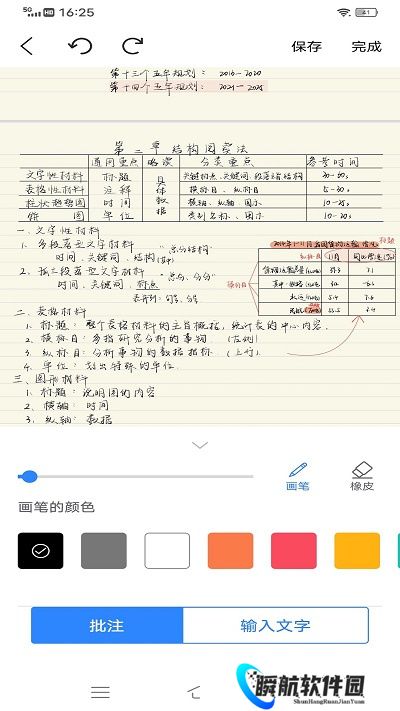 5G HD 16:25
保存 完成
第十三个五年规划：2016-2020
第十四个五年规划：2021-2025
第二章 结构阅读法
通用重点 略读 分类重点 参考时间
文字性材料 标题 具体数据 关键词 30-60s
表格性材料 注释 横标目、纵标目 5-30s
时间 横轴、纵轴、图示 10-25s
饼图 单位 类别名称、图示 10-20s
一、文字性材料
1、多段落型文字材料 "总分结构"
时间、关键词、结构
标题
横标目
纵标目
时间、关键词、标点
二、表格材料
1、标题：整个表格材料的主旨概括，统计表的中心内容.
2、横标目：多指研究分析的事物.（左侧）
3、纵标目：分析事物的数据指标.（上方）
4、单位：划出特殊的单位.
三、图形材料
1、标题：说明图的内容
2、横轴：时间
3、纵轴：数据
画笔 橡皮
画笔的颜色
批注 输入文字
瞬航软件园
ShunHangRuanJianYuan